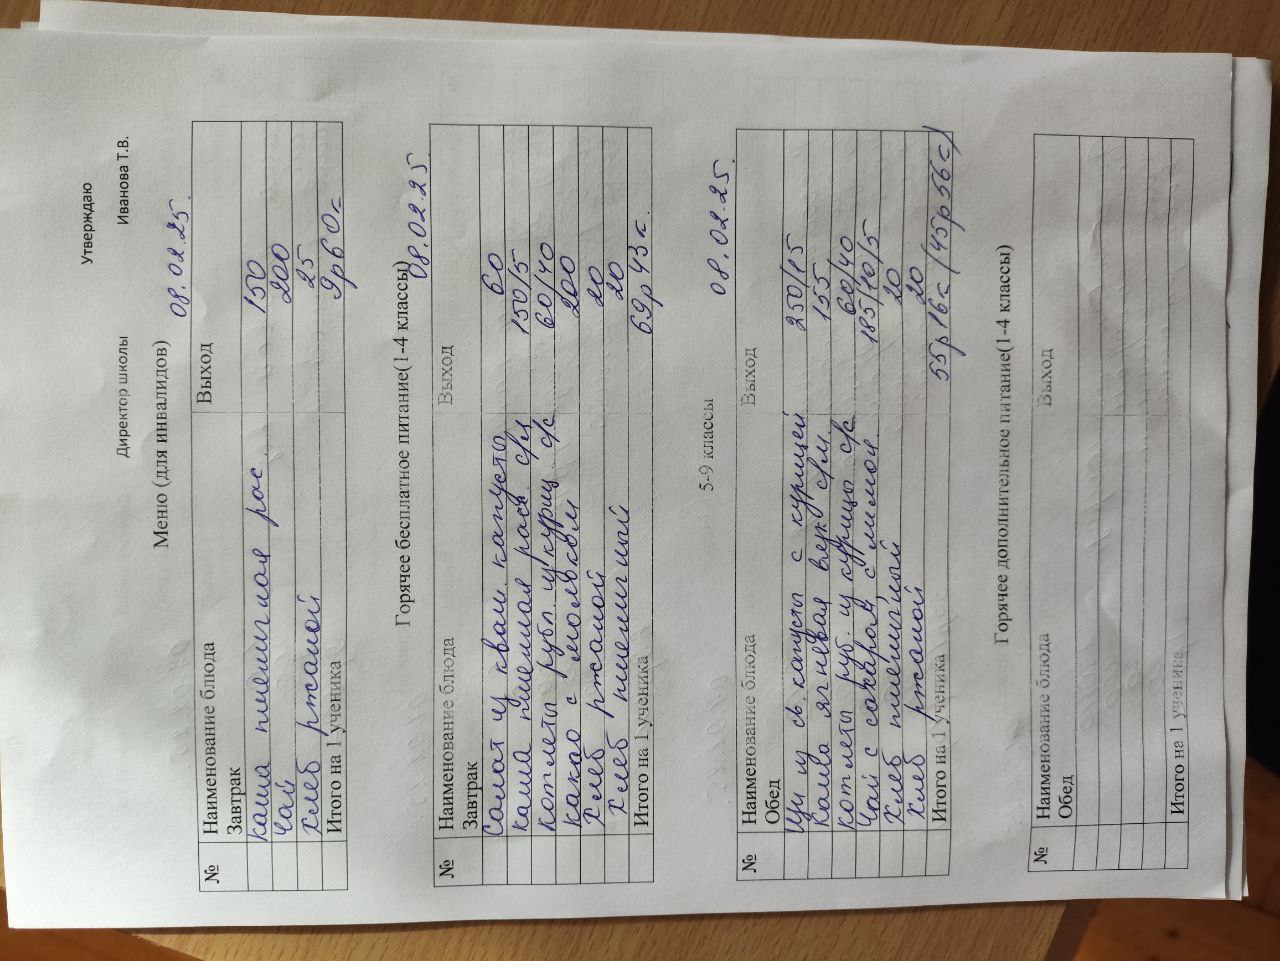 Утверждаю
Директор школы Иванова Т.В.
Меню (для инвалидов) 08.02.25.
№ Наименование блюда Выход
Завтрак
каша пшеничная рас 150
Чай 200
Хлеб ржаной 25
Итого на 1 ученика 9р60к
Горячее бесплатное питание(1-4 классы) 08.02.25
№ Наименование блюда Выход
Завтрак
Салат из кваш. капусты 60
каша пшенная расс. с/м 150/5
котлеты рубл. из куриц с/с 60/40
какао с молоком 200
Хлеб ржаной 20
Хлеб пшеничный 20
Итого на 1 ученика 69р43к.
5-9 классы 08.02.25.
№ Наименование блюда Выход
Обед
Щи из св. капусты с курицей 250/15
Каша ячневая вязк с/м 155
котлеты руб. из курицы с/с 60/40
Чай с сахаром, с лимон. 185/10/5
Хлеб пшеничный 20
хлеб ржаной 20
Итого на1 ученика 55р16к (45р56к)
Горячее дополнительное питание(1-4 классы)
№ Наименование блюда Выход
Обед
Итого на 1 ученика